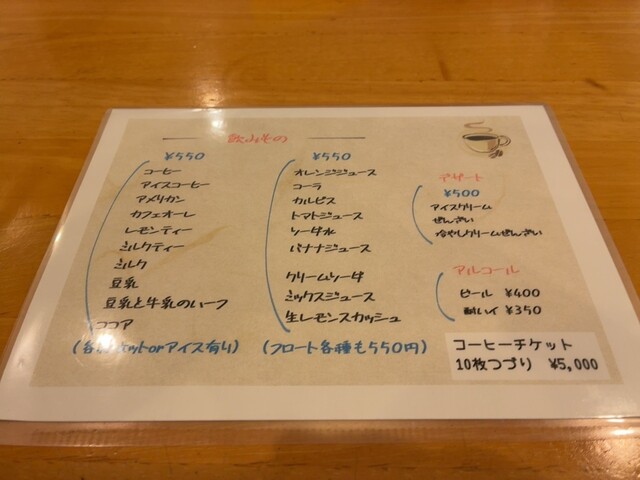 飲みもの
¥550
コーヒー
アイスコーヒー
アメリカン
カフェオーレ
レモンティー
ミルクティー
ミルク
豆乳
豆乳と牛乳のハーフ
ココア
(各種ホットorアイス有り)
¥550
オレンジジュース
コーラ
カルピス
トマトジュース
ソーダ水
バナナジュース
クリームソーダ
ミックスジュース
生レモンスカッシュ
(フロート各種も550円)
デザート
¥500
アイスクリーム
ぜんざい
冷やしクリームぜんざい
アルコール
ビール ¥400
酎ハイ ¥350
コーヒーチケット
10枚つづり ¥5,000